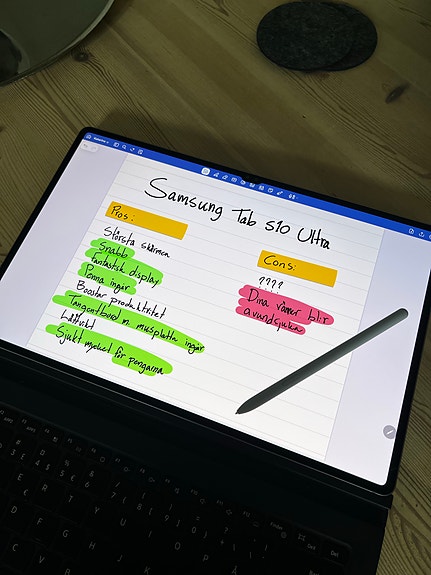 Samsung Tab S10 Ultra
Pros:
Största skärmen
Snabb
fantastisk display
Penna ingår
Boostar produktivitet
Tangentbord m. musplatta ingår
Lättvikt
Sjukt mycket för pengarna
Cons:
????
Dina vänner blir
avundsjuka